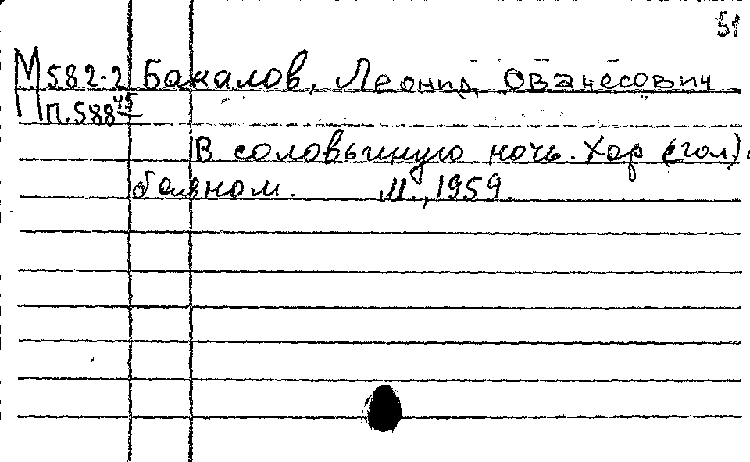 51
М 582-2 Бакалов, Леонид Ованесович
П.588 45
В соловьиную ночь. Хор (гол)
баяном. М., 1959.